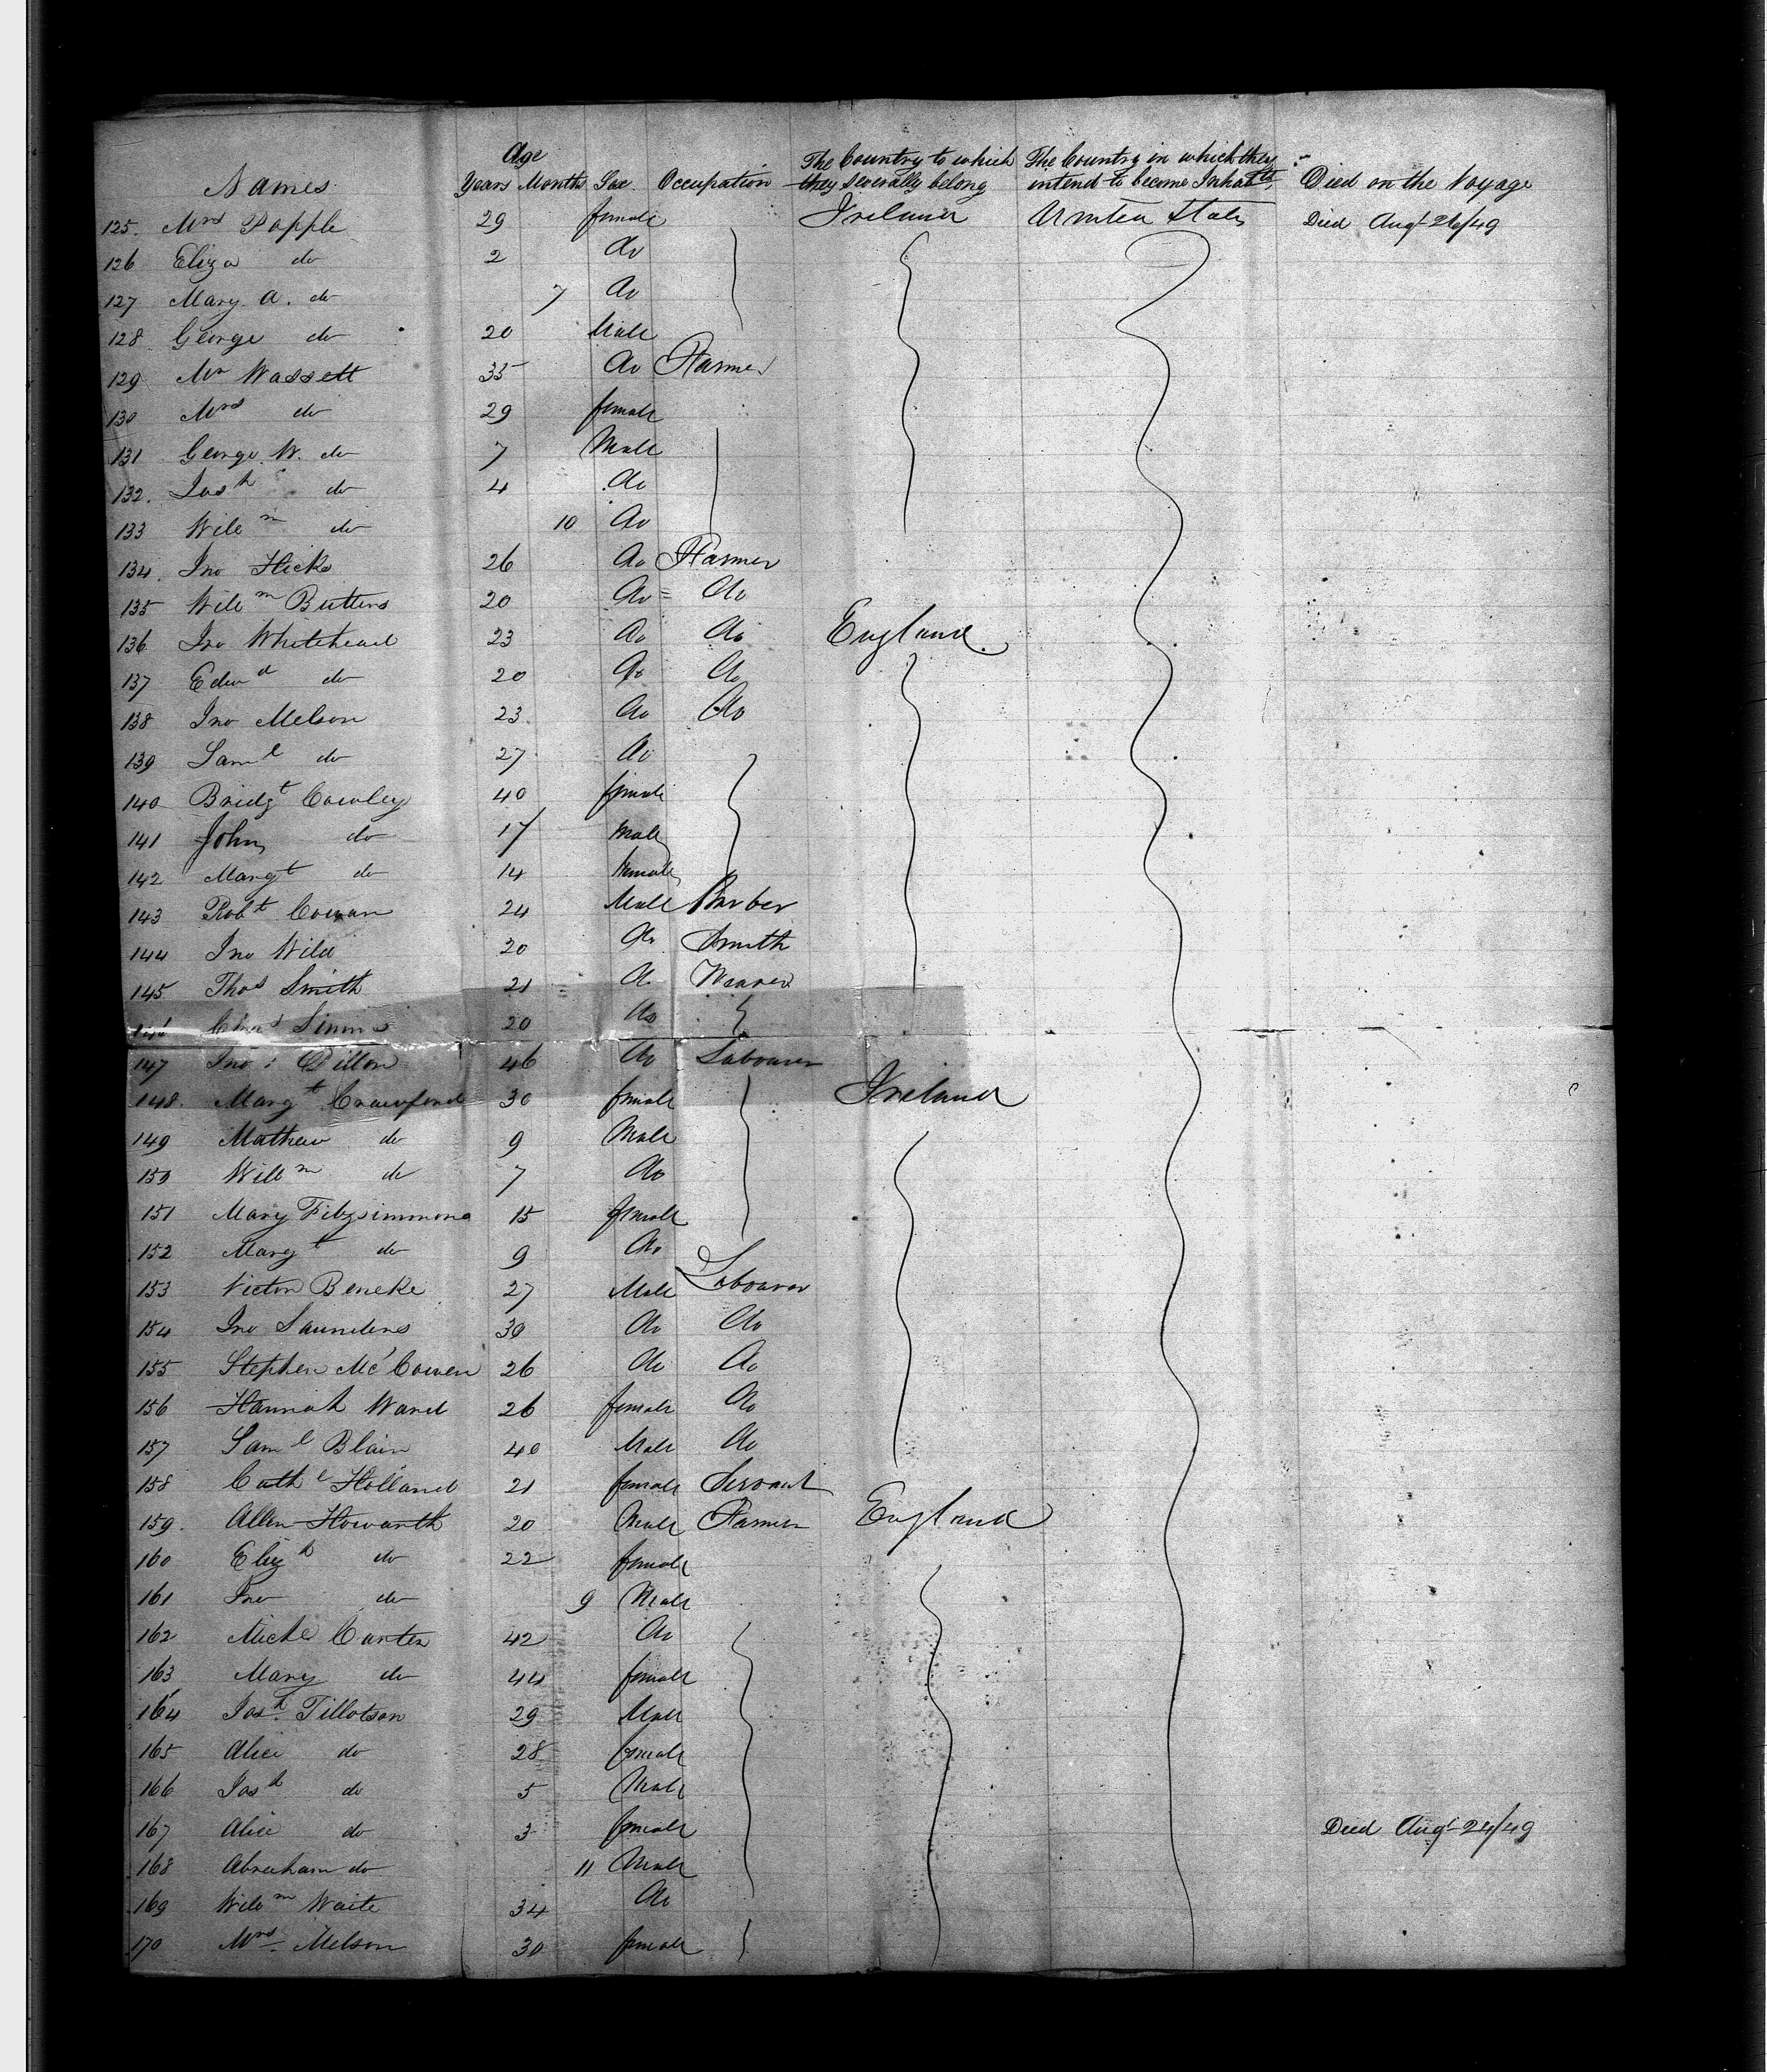 Age
The Country to which The Country in which they
Names Years Months Sex Occupation they severally belong intend to become Inhabts Died on the Voyage
125. Mrs Popple 29 female Ireland United States Died Augt 26/49
126 Eliza do 2 do
127 Mary A. do 7 do
128 George do 20 Male
129 Mr Wassett 35 do Farmer
130 Mrs do 29 female
131 George W. do 7 Male
132. Josh do 4 do
133 Willm do 10 do
134. Jno Hicks 26 do Farmer
135 Willm Butters 20 do do
136 Jno Whitehead 23 do do England
137 Edwd do 20 do do
138 Jno Melson 23 do do
139 Saml do 27 do
140 Bridgt Cowley 40 female
141 John do 17 Male
142 Margt do 14 female
143 Robt Cowan 24 Male Barber
144 Jno Wild 20 do Smith
145 Thos Smith 21 do Weaver
146 Chas Simms 20 do
147 Jno: Dillon 46 do Labourer
148. Margt Crawford 30 female Ireland
149 Mathew do 9 Male
150 Willm do 7 do
151 Mary Fitzsimmons 15 female
152 Margt do 9 do
153 Victor Beneke 27 Male Labourer
154 Jno Saunders 30 do do
155 Stephen Mc Cowen 26 do do
156 Hannah Ward 26 female do
157 Saml Blain 40 Male do
158 Cathe Holland 21 female Servant
159. Allen Howarth 20 Male Farmer England
160 Elizh do 22 female
161 Jno do 9 Male
162 Michl Carter 42 do
163 Mary do 44 female
164 Josh Tillotson 29 Male
165 Alice do 28 female
166 Josh do 5 Male
167 Alice do 3 female Died Augt 24/49
168 Abraham do 11 Male
169 Willm Waite 34 do
170 Mrs. Melson 30 female